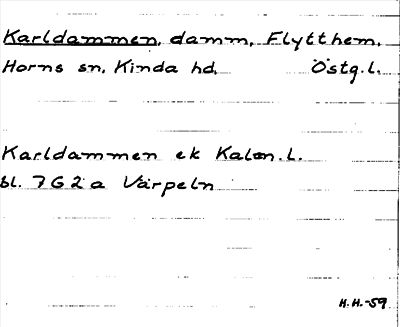 Karldammen, damm, Flytthem,
Horns sn, Kinda hd. Östg.l.
Karldammen ek Kalm.l.
bl. 7G2a Värpeln
H.H.-59